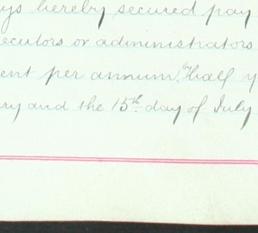 ys hereby secured pay
ecutors or administrators
ent per annum. half y
ary and the 15th day of July